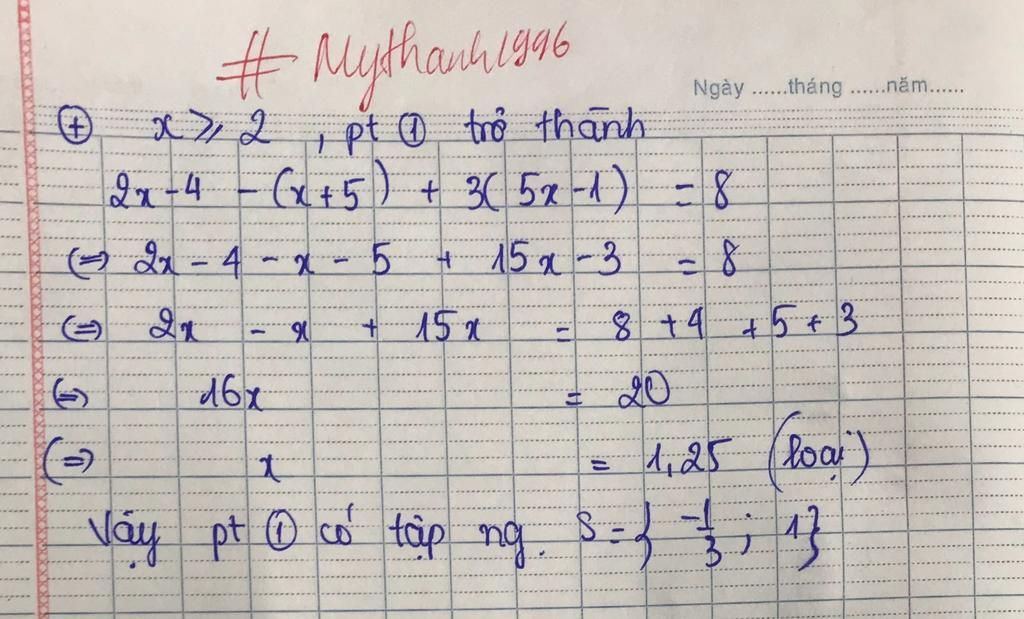 # Mythanh1996
Ngày ......tháng ......năm......
⊕ x ⩾ 2 , pt ① trở thành
2x - 4 - (x + 5) + 3(5x - 1) = 8
(=) 2x - 4 - x - 5 + 15x - 3 = 8
(=) 2x - x + 15x = 8 + 4 + 5 + 3
(=) 16x = 20
(=) x = 1,25 (loại)
Vậy pt ① có tập ng. S = { -1/3 ; 1 }